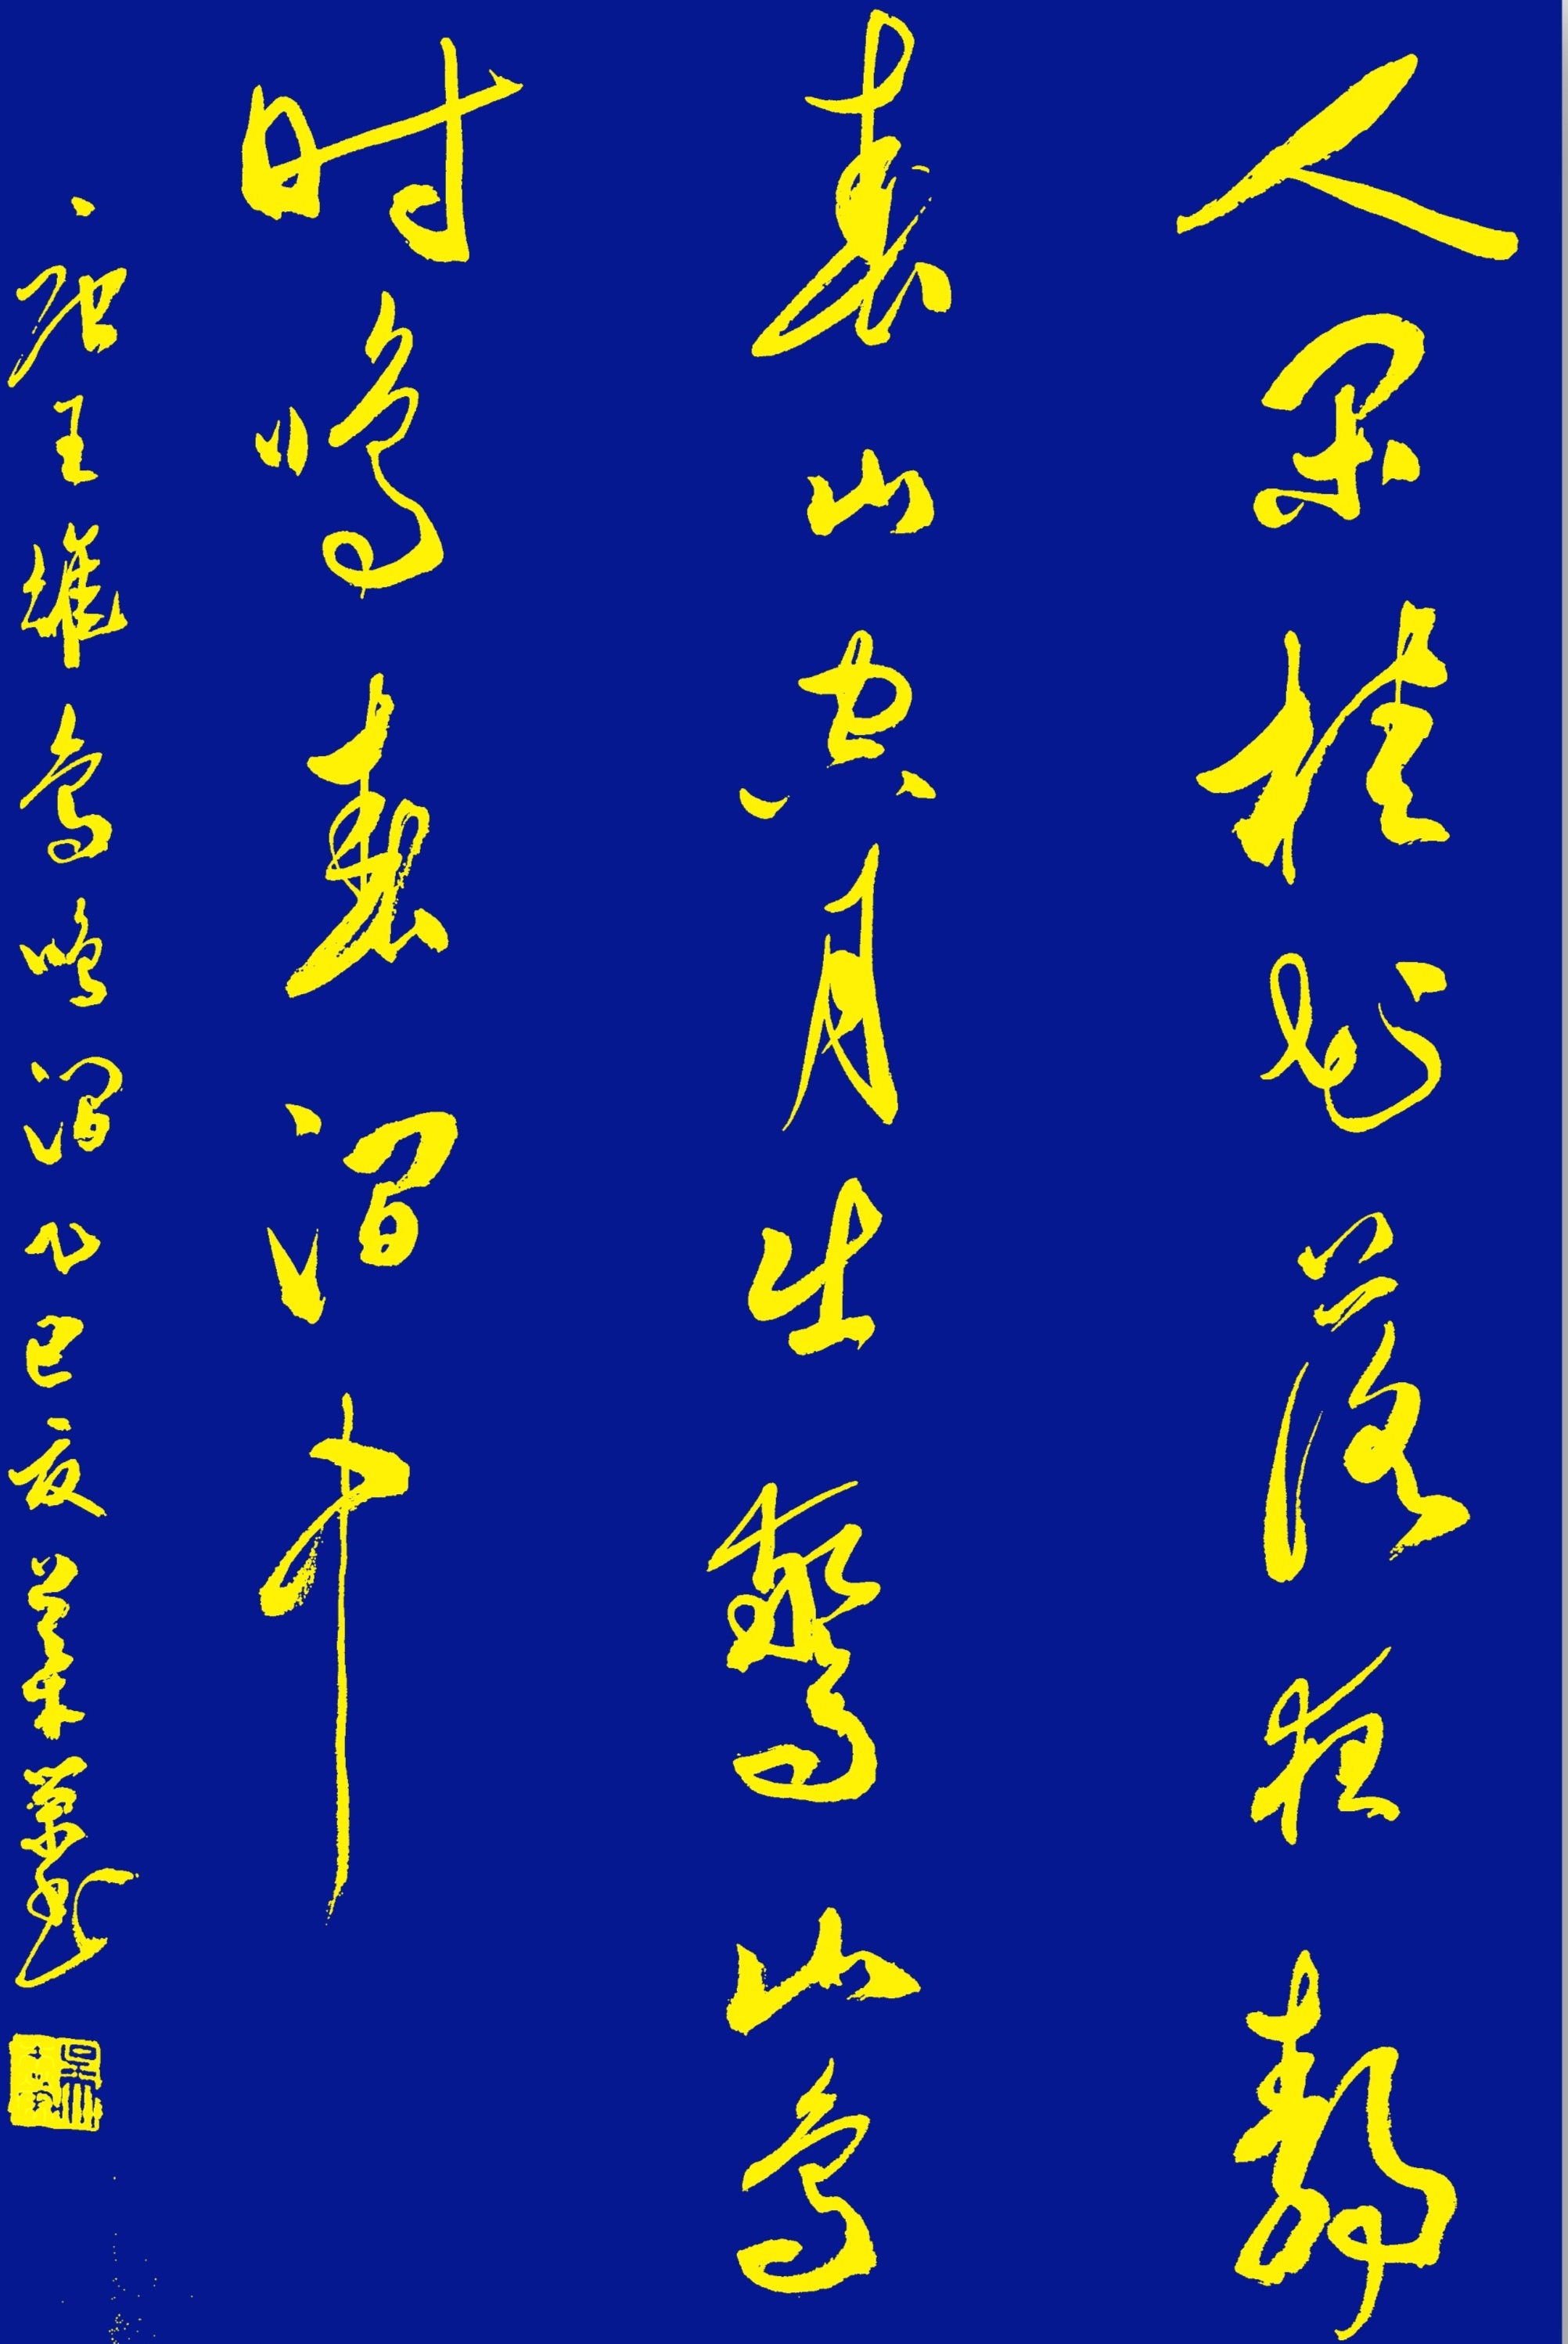 人闲桂花落夜静
春山空月出驚山鸟
时鸣春涧中
唐王维鸟鸣涧乙巳夏